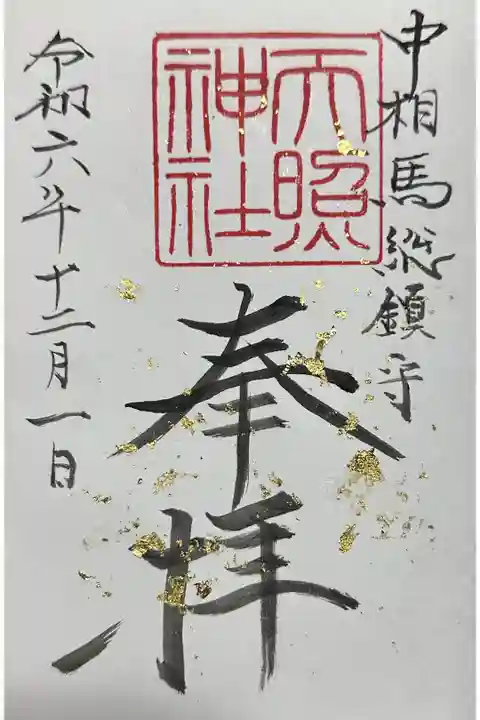 中相馬総鎮守
天照神社
奉拝
令和六年十二月一日